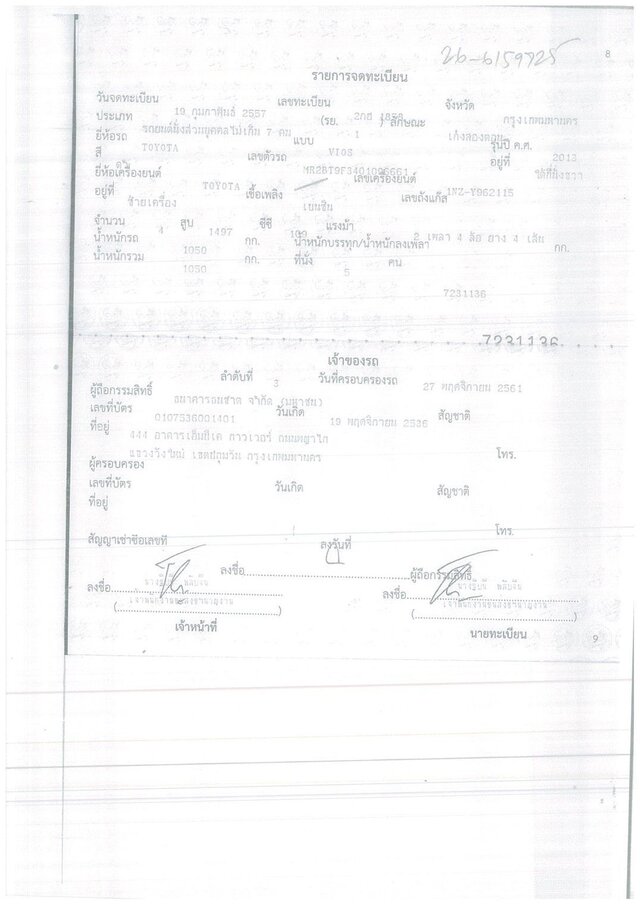 26-6159725
8
รายการจดทะเบียน
วันจดทะเบียน 19 กุมภาพันธ์ 2557 เลขทะเบียน จังหวัด กรุงเทพมหานคร
ประเภท รถยนต์นั่งส่วนบุคคลไม่เกิน 7 คน (รย. 1 ) ลักษณะ เก๋งสองตอน
ยี่ห้อรถ TOYOTA แบบ VIOS รุ่นปี ค.ศ. 2013
สี เลขตัวรถ อยู่ที่
ยี่ห้อเครื่องยนต์ TOYOTA เลขเครื่องยนต์ 1NZ-Y962115
อยู่ที่ ซ้ายเครื่อง เชื้อเพลิง เบนซิน เลขถังแก๊ส
จำนวน 4 สูบ 1497 ซีซี 109 แรงม้า 2 เพลา 4 ล้อ ยาง 4 เส้น
น้ำหนักรถ 1050 กก. น้ำหนักบรรทุก/น้ำหนักลงเพลา กก.
น้ำหนักรวม 1050 กก. ที่นั่ง 5 คน
7231136
7231136
เจ้าของรถ
ลำดับที่ 3 วันที่ครอบครองรถ 27 พฤศจิกายน 2561
ผู้ถือกรรมสิทธิ์ ธนาคารธนชาต จำกัด (มหาชน)
เลขที่บัตร 0107536001401 วันเกิด 19 พฤศจิกายน 2536 สัญชาติ
ที่อยู่ 444 อาคารเอ็มบีเค ทาวเวอร์ ถนนพญาไท
แขวงวังใหม่ เขตปทุมวัน กรุงเทพมหานคร โทร.
ผู้ครอบครอง
เลขที่บัตร วันเกิด สัญชาติ
ที่อยู่
โทร.
สัญญาเช่าซื้อเลขที่ ลงวันที่
ลงชื่อ ผู้ถือกรรมสิทธิ์
ลงชื่อ ลงชื่อ
( ) ( )
เจ้าหน้าที่ นายทะเบียน
9